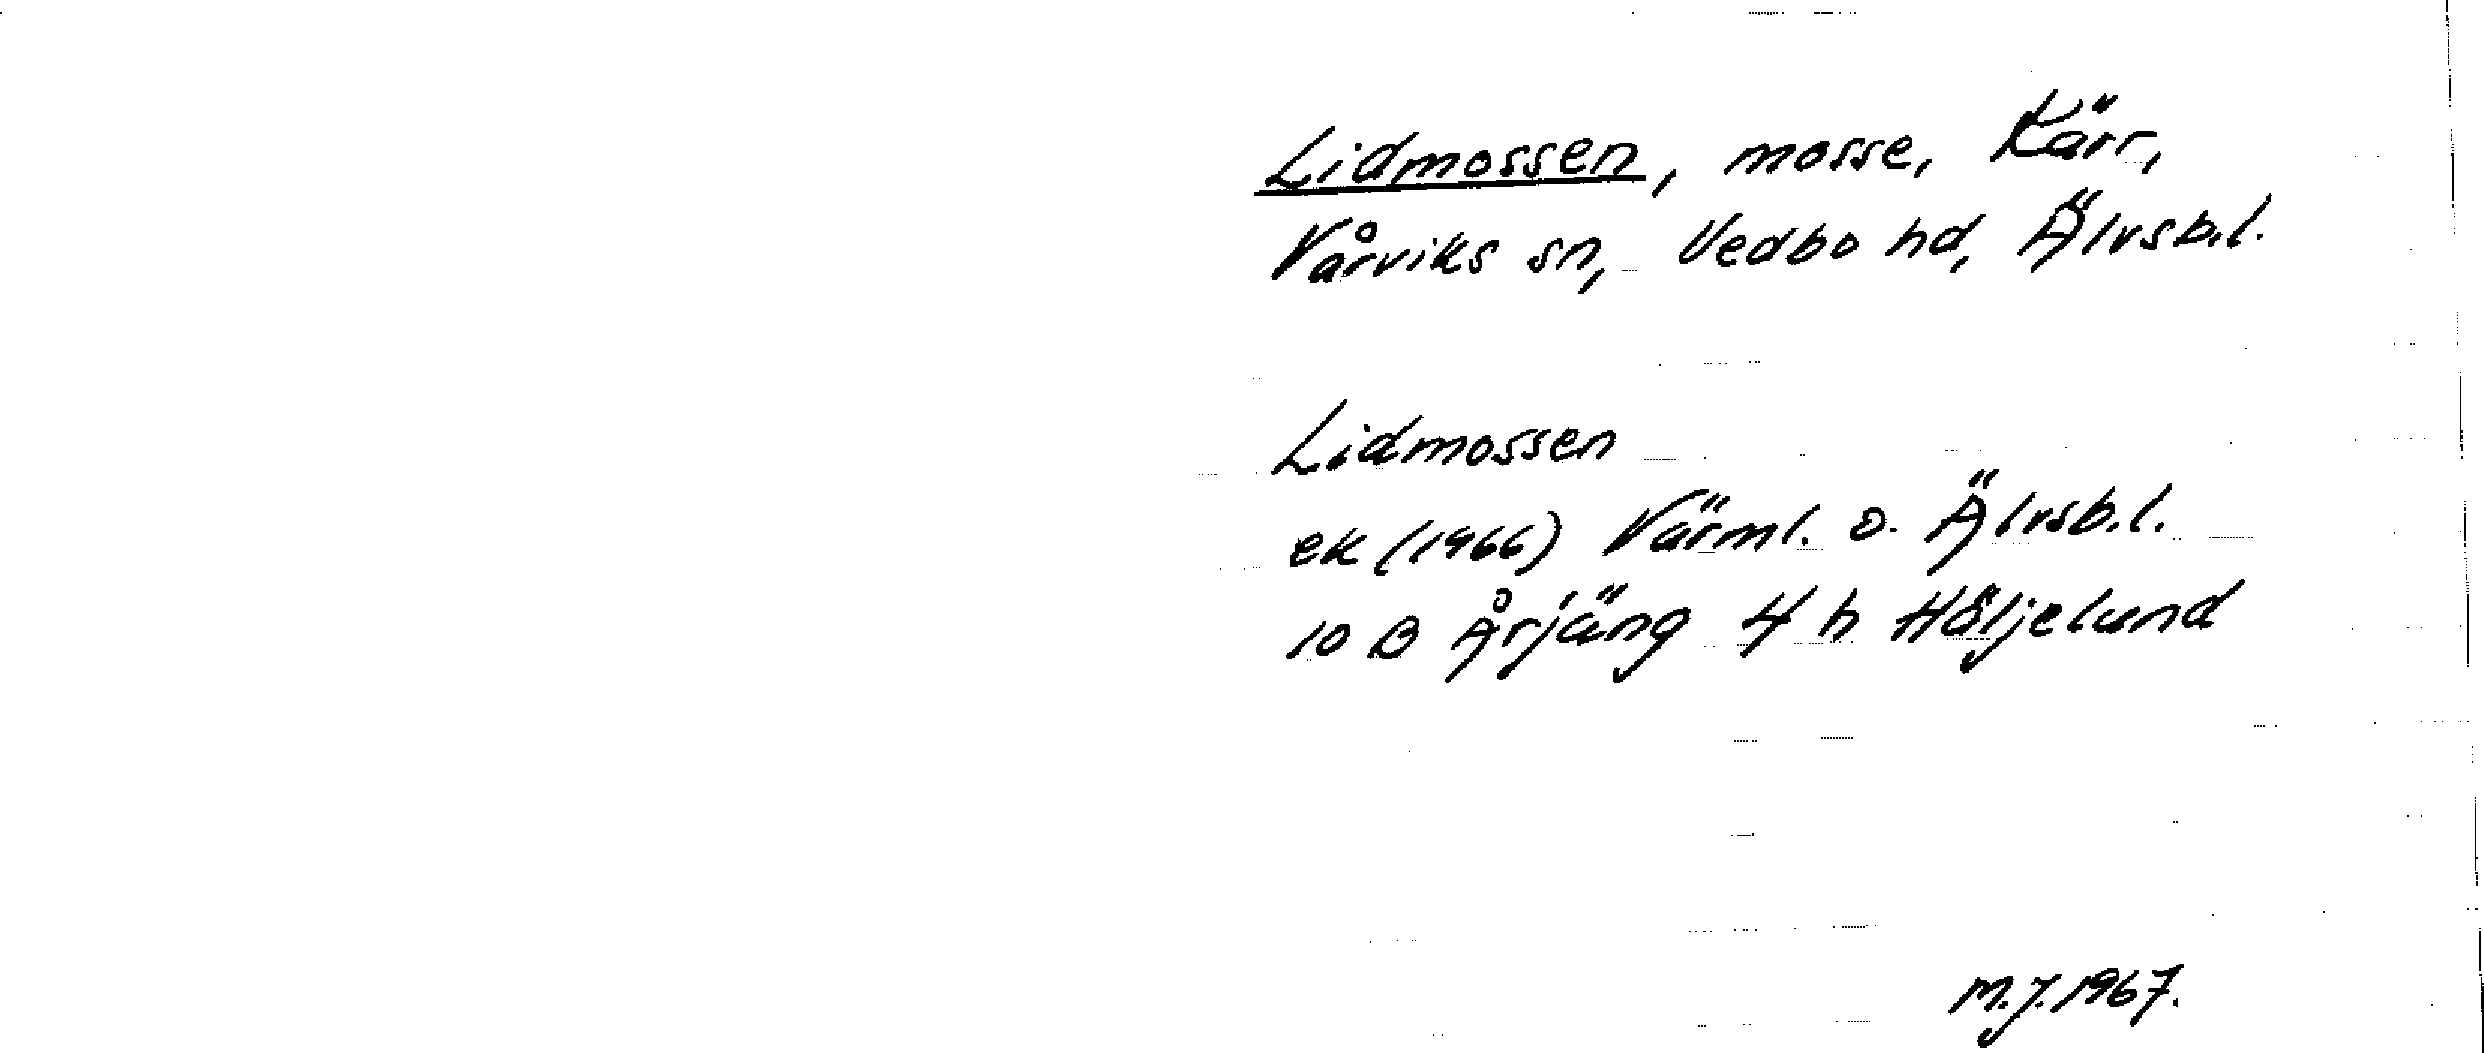 Lidmossen, mosse, Kärr,
Vårviks sn, Vedbo hd, Älvsb.l.
Lidmossen
ek (1966) Värml. o. Älvsb.l.
10 B Årjäng 4 h Höljelund
M.J. 1967.